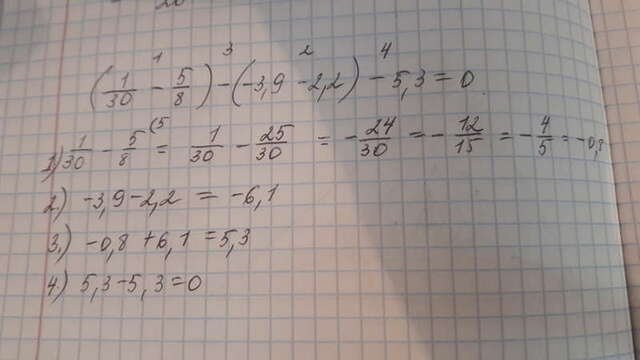 1 3 2 4
(1/30 - 5/8) - (-3,9 - 2,2) - 5,3 = 0
1) 1/30 - 5/8 (5 = 1/30 - 25/30 = -24/30 = -12/15 = -4/5 = -0,8
2.) -3,9 - 2,2 = -6,1
3.) -0,8 + 6,1 = 5,3
4.) 5,3 - 5,3 = 0